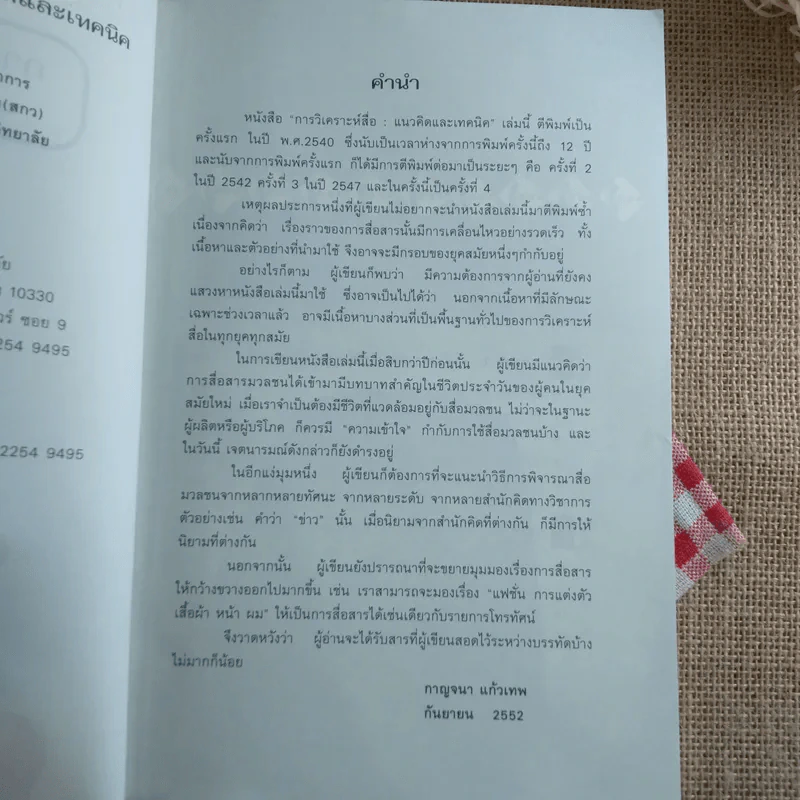 และเทคนิค
การ
(สกว)
ทยาลัย
ย
10330
วร์ ซอย 9
254 9495
2254 9495
คำนำ
หนังสือ "การวิเคราะห์สื่อ : แนวคิดและเทคนิค" เล่มนี้ ตีพิมพ์เป็น
ครั้งแรก ในปี พ.ศ.2540 ซึ่งนับเป็นเวลาห่างจากการพิมพ์ครั้งนี้ถึง 12 ปี
และนับจากการพิมพ์ครั้งแรก ก็ได้มีการตีพิมพ์ต่อมาเป็นระยะๆ คือ ครั้งที่ 2
ในปี 2542 ครั้งที่ 3 ในปี 2547 และในครั้งนี้เป็นครั้งที่ 4
เหตุผลประการหนึ่งที่ผู้เขียนไม่อยากจะนำหนังสือเล่มนี้มาตีพิมพ์ซ้ำ
เนื่องจากคิดว่า เรื่องราวของการสื่อสารนั้นมีการเคลื่อนไหวอย่างรวดเร็ว ทั้ง
เนื้อหาและตัวอย่างที่นำมาใช้ จึงอาจจะมีกรอบของยุคสมัยหนึ่งๆกำกับอยู่
อย่างไรก็ตาม ผู้เขียนก็พบว่า มีความต้องการจากผู้อ่านที่ยังคง
แสวงหาหนังสือเล่มนี้มาใช้ ซึ่งอาจเป็นไปได้ว่า นอกจากเนื้อหาที่มีลักษณะ
เฉพาะช่วงเวลาแล้ว อาจมีเนื้อหาบางส่วนที่เป็นพื้นฐานทั่วไปของการวิเคราะห์
สื่อในทุกยุคทุกสมัย
ในการเขียนหนังสือเล่มนี้เมื่อสิบกว่าปีก่อนนั้น ผู้เขียนมีแนวคิดว่า
การสื่อสารมวลชนได้เข้ามามีบทบาทสำคัญในชีวิตประจำวันของผู้คนในยุค
สมัยใหม่ เมื่อเราจำเป็นต้องมีชีวิตที่แวดล้อมอยู่กับสื่อมวลชน ไม่ว่าจะในฐานะ
ผู้ผลิตหรือผู้บริโภค ก็ควรมี "ความเข้าใจ" กำกับการใช้สื่อมวลชนบ้าง และ
ในวันนี้ เจตนารมณ์ดังกล่าวก็ยังดำรงอยู่
ในอีกแง่มุมหนึ่ง ผู้เขียนก็ต้องการที่จะแนะนำวิธีการพิจารณาสื่อ
มวลชนจากหลากหลายทัศนะ จากหลายระดับ จากหลายสำนักคิดทางวิชาการ
ตัวอย่างเช่น คำว่า "ข่าว" นั้น เมื่อนิยามจากสำนักคิดที่ต่างกัน ก็มีการให้
นิยามที่ต่างกัน
นอกจากนั้น ผู้เขียนยังปรารถนาที่จะขยายมุมมองเรื่องการสื่อสาร
ให้กว้างขวางออกไปมากขึ้น เช่น เราสามารถจะมองเรื่อง "แฟชั่น การแต่งตัว
เสื้อผ้า หน้า ผม" ให้เป็นการสื่อสารได้เช่นเดียวกับรายการโทรทัศน์
จึงวาดหวังว่า ผู้อ่านจะได้รับสารที่ผู้เขียนสอดไว้ระหว่างบรรทัดบ้าง
ไม่มากก็น้อย
กาญจนา แก้วเทพ
กันยายน 2552